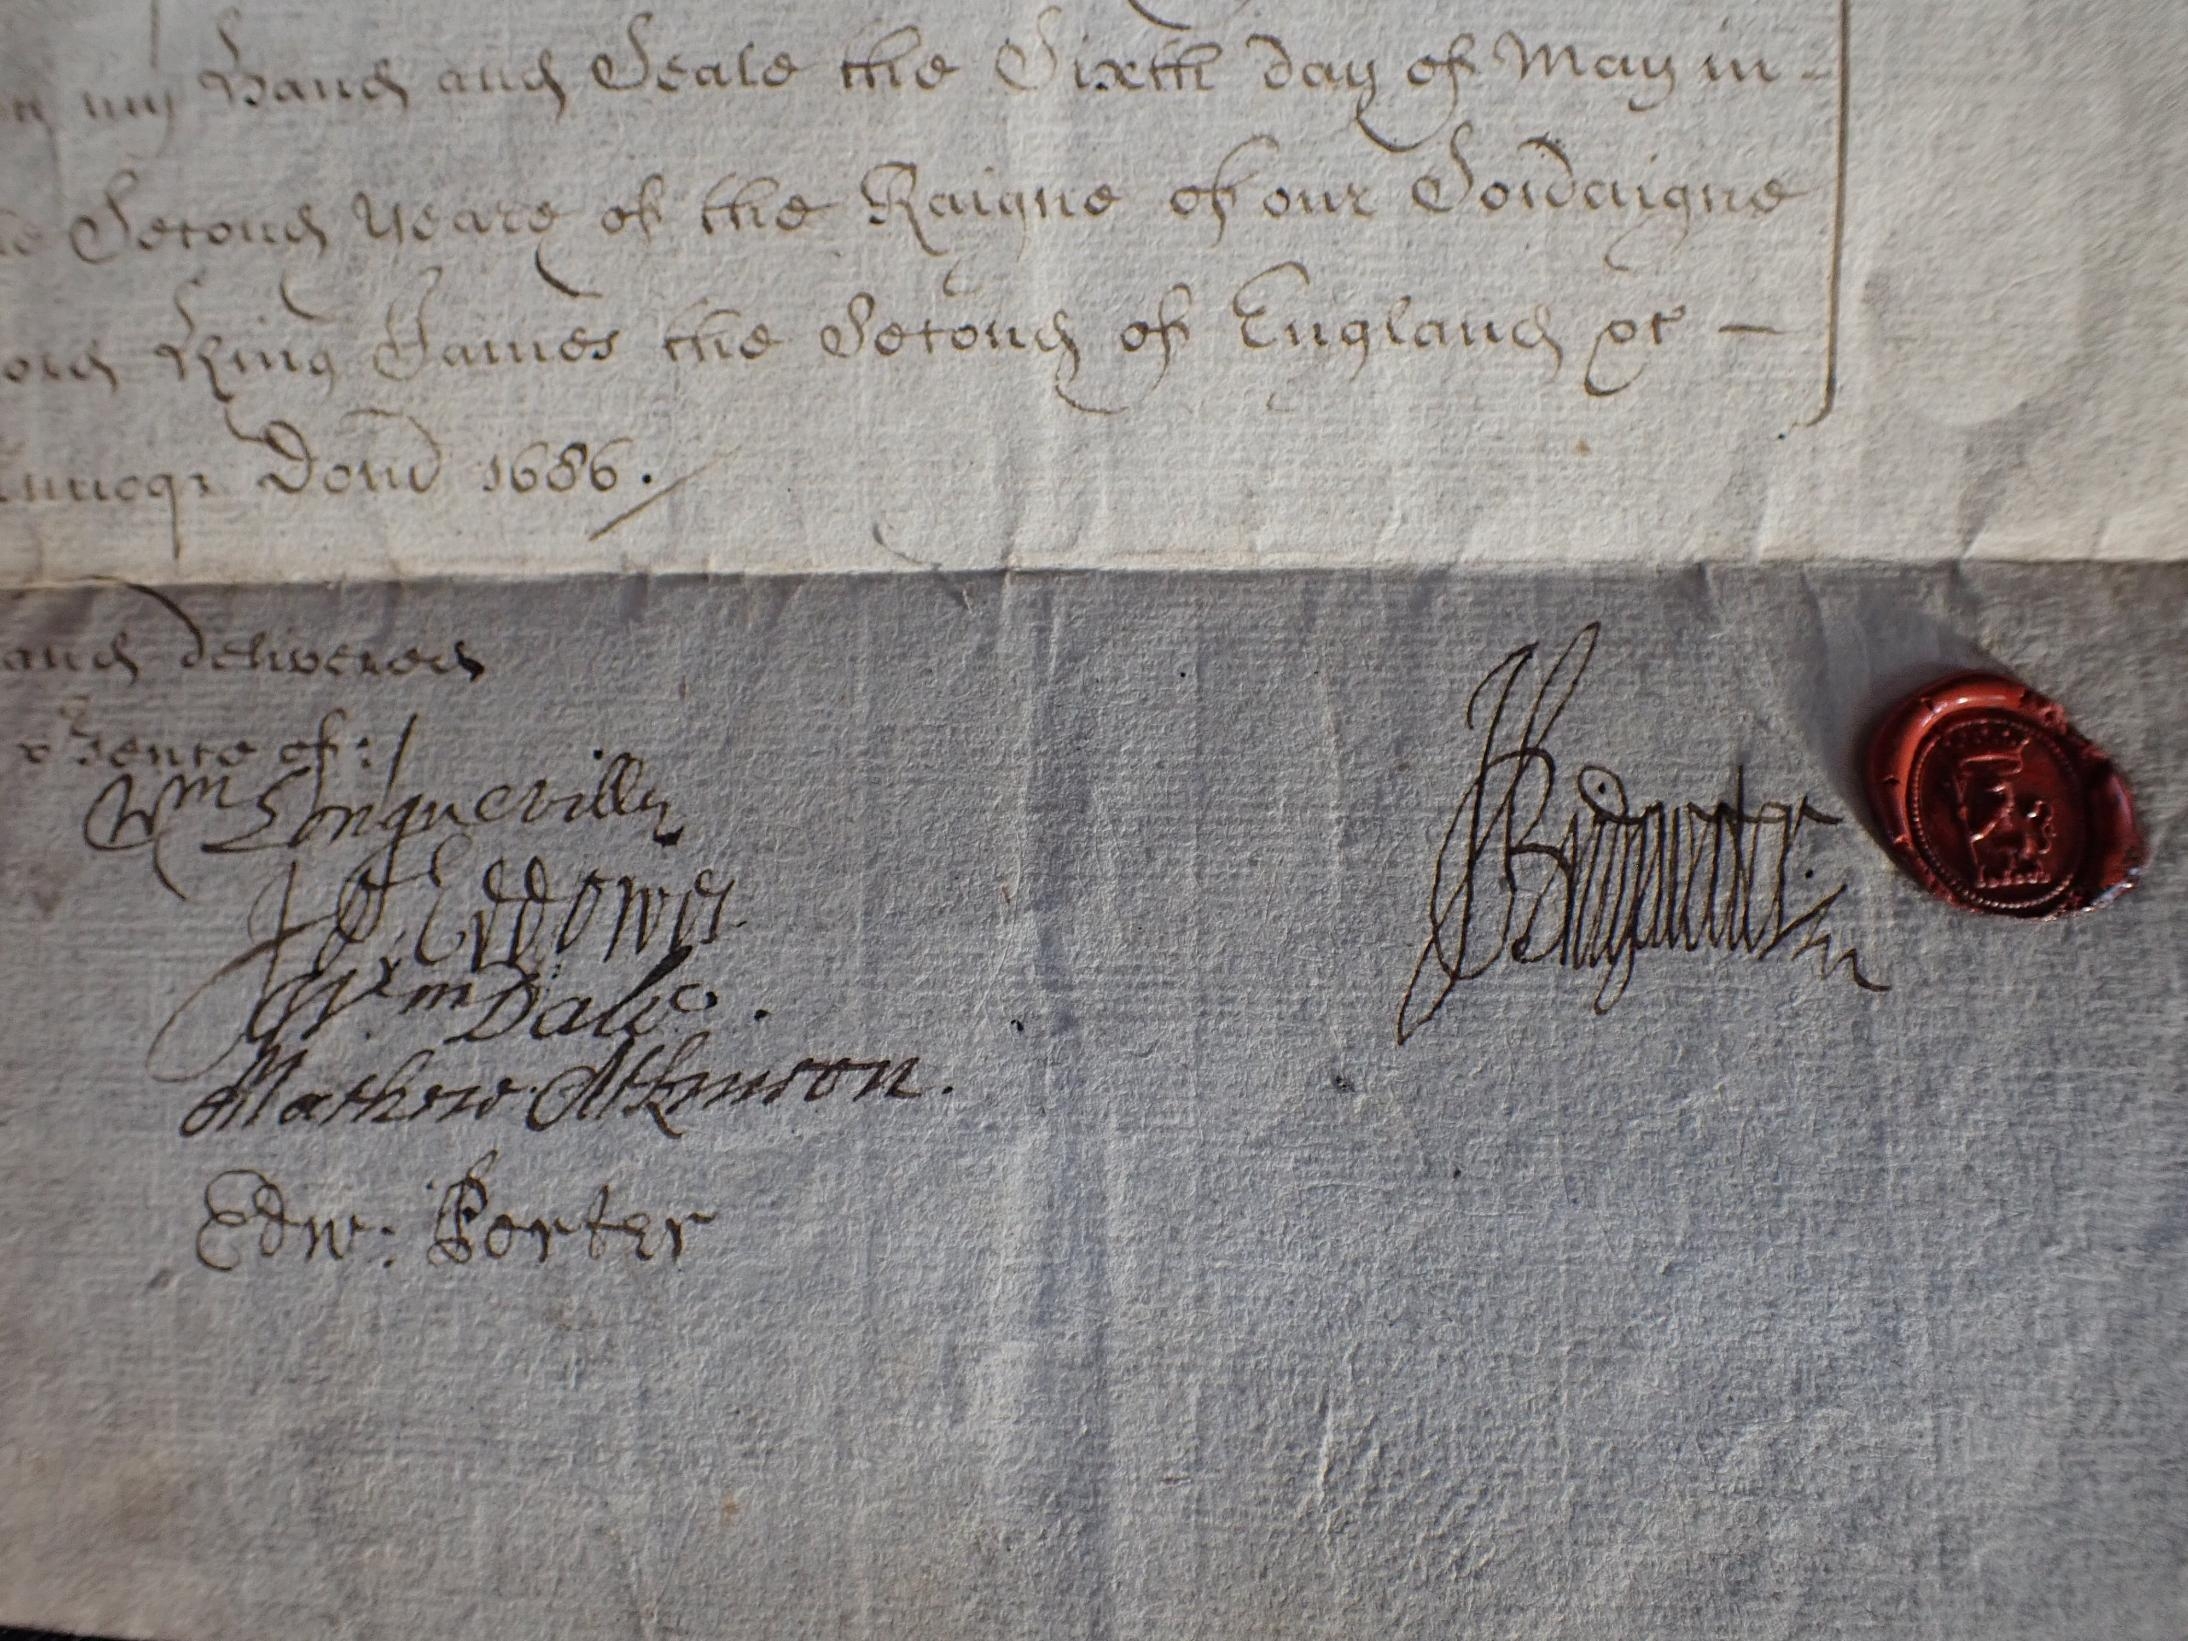 my hand and Seale the Sixth day of May in -
Second Yeare of the Raigne of our Sov'aigne
King James the Second of England &c -
Annoq; Dom' 1686.
and delivered
sence of:
Wm Longuevill
Jo: Eddowes.
Wm Dale.
Mathew Atkinson.
Edw: Porter
J Bridgewater.